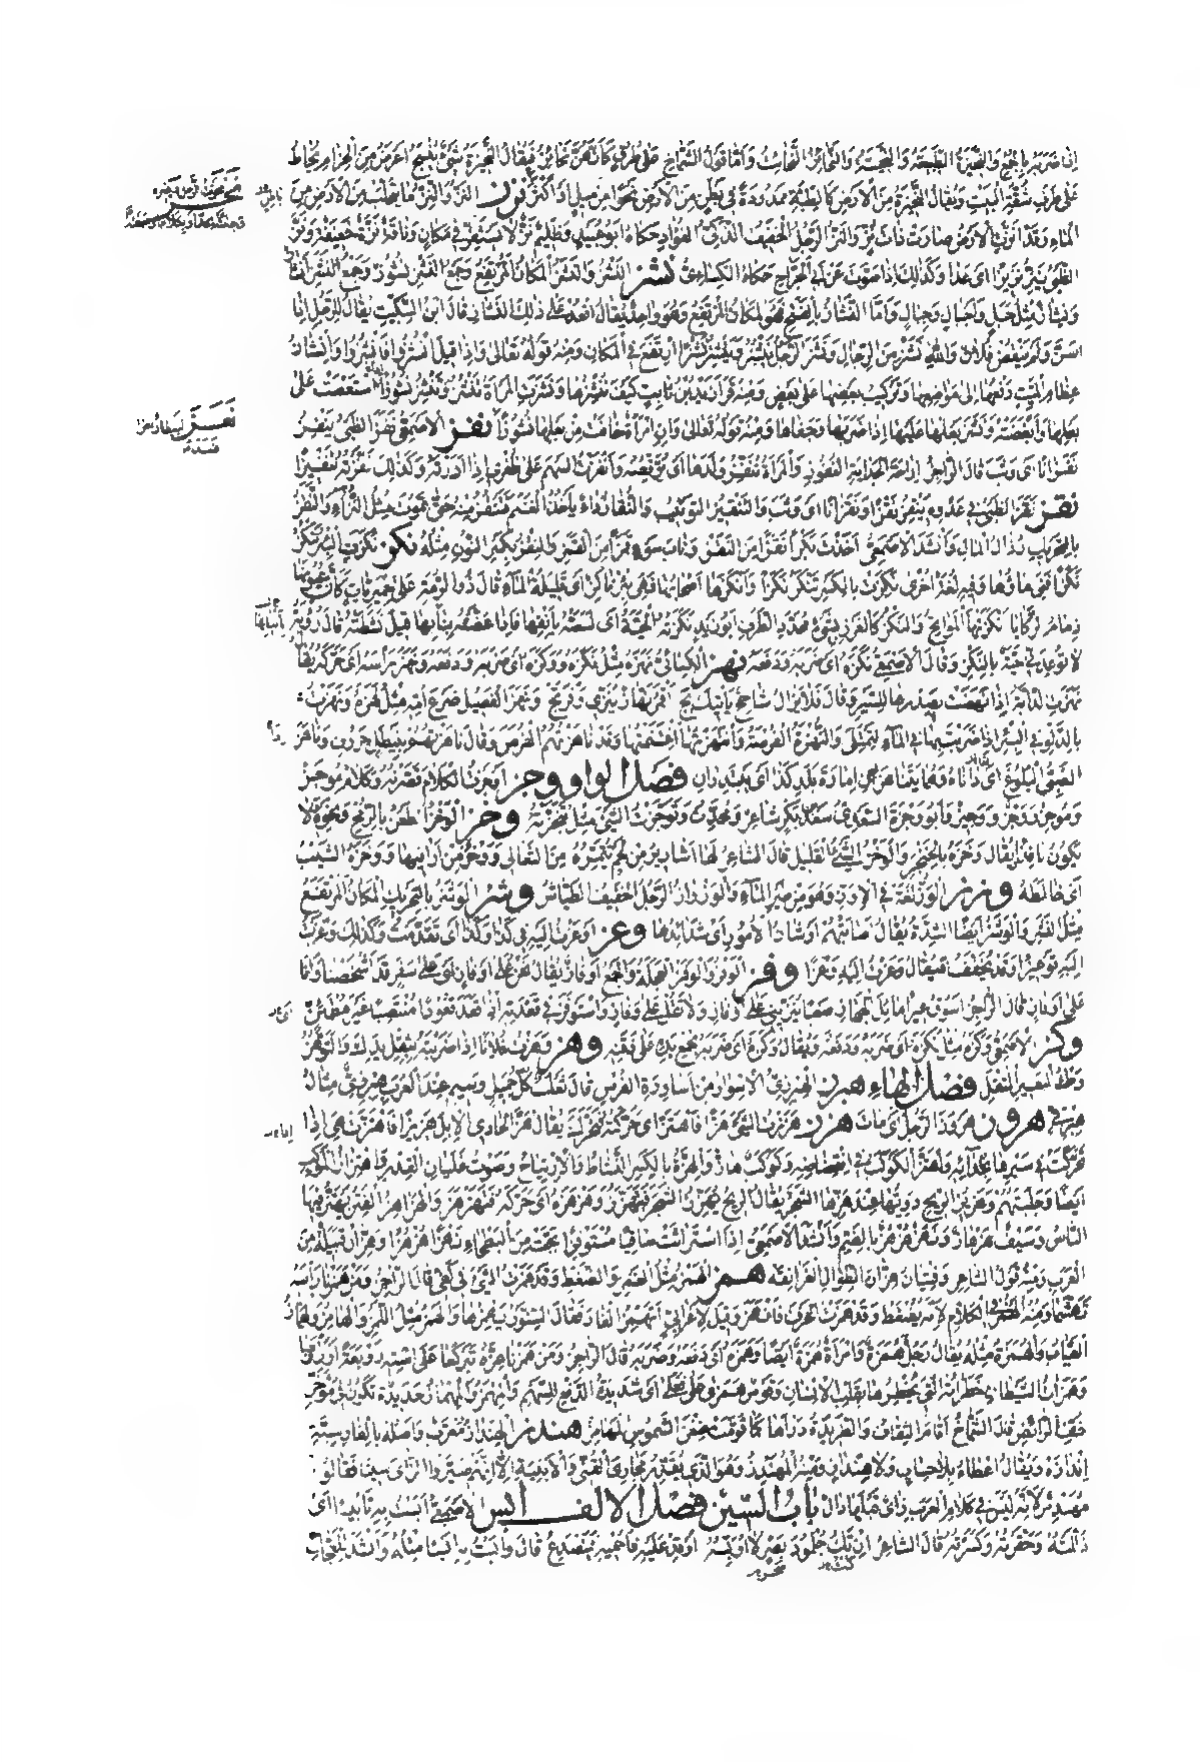 اذا ضربه بالجمع والنحيزة الطبيعة والنحيتة والنحائز النحائت واما قول الشماخ على طرق كانهن نحائز فيقال النحيزة شئ ينسج اعرض من الحزام يخاط
على طرف شقة البيت ويقال النحيزة من الارض كالطبة ممدودة في بطن من الارض نحوا من ميل او اكثر نزز النز والنز ما يتحلب من الارض من
الماء وقد انزت الارض صارت ذات نز والنز الرجل الخفيف الذكي الفؤاد حكاه ابو عبيد وظليم نز لا يستقر في مكان وناقة نزة خفيفة ونز
الظبي ينز نزيزا اي عدا وكذلك اذا صوت عن ابي الجراح حكاه الكسائي نشز النشز والنشز المكان المرتفع وجمع النشز نشوز وجمع النشز انشاز
ونشاز مثل جبل واجبال وجبال واما النشاز بالفتح فهو المكان المرتفع وهو واحد يقال اقعد على ذلك النشاز قال ابن السكيت يقال للرجل اذا
اسن ولم ينقص فلان والله نشز من الرجال ونشز الرجل ينشز وينشز نشزا ارتفع في المكان ومنه قوله تعالى واذا قيل انشزوا فانشزوا وانشاز
عظام الميت رفعها الى مواضعها وتركيب بعضها على بعض ومنه قرأ زيد بن ثابت كيف ننشزها ونشزت المرأة تنشز وتنشز نشوزا استعصت على
بعلها وابغضته ونشز بعلها عليها اذا ضربها وجفاها ومنه قوله تعالى وان امرأة خافت من بعلها نشوزا نفز الاصمعي نفز الظبي ينفز
نفزانا اي وثب قال الراجز اراحة الجداية النفوز والمرأة تنفز ولدها اي ترقصه وانفزت السهم على ظفري اذا ادرته وكذلك نفزته تنفيزا
نقز نقز الظبي في عدوه ينقز نقزا ونقزانا اي وثب والتنقيز التوثيب والنقاز داء يأخذ الغنم فتنقز منه حتى تموت مثل النزاء والنقز
بالتحريك رذال المال وانشد الاصمعي اخذت بكرا نقزا من النقز وناب سوء قمزا من القمز والنقز بكسر النون مثله نكز نكزت البئر تنكز
نكزا فني ماؤها وفيه لغة اخرى نكزت بالكسر تنكز نكزا وانكزها اصحابها فهي بئر ناكز اي قليلة الماء قال ذو الرمة على حميريات كان عيونها
ذمام الركايا نكزتها المواتح والنكز كالغرز بشئ محدد الطرف ابو زيد نكزته الحية اي لسعته بانفها فاذا عضته بنابها قيل نشطته قال رؤبة
لا توعدني حية بالنكز وقال الاصمعي نكزه اي ضربه ودفعه نهز الكسائي نهزه مثل نكزه ووكزه اي ضربه ودفعه ونهز رأسه اي حركه يقال
نهزت الدابة اذا نهضت بصدرها للسير وقال فلا يزال شاحج يأتيك بج اقمر نهاز ينزي وفرتج ونهز الفصيل ضرع امه مثل لهزه ونهزت
بالدلو في البئر اذا ضربت بها في الماء لتمتلئ والنهزة الفرصة وانتهزتها اغتنمتها وقد ناهزتهم الفرص وقال ناهزتهم بنيطل جروف وناهز
الصبي البلوغ اي داناه وهما يتناهزان امارة بلد كذا اي يبتدران فصل الواو وجز اوجزت الكلام قصرته وكلام موجز
وموجز ووجز ووجيز وابو وجزة السعدي سعد بكر شاعر ومحدث وتوجزت الشئ مثل تنجزته وخز الوخز الطعن بالرمح ونحوه لا
يكون نافذا يقال وخزه بالخنجر والوخز الشئ القليل قال الشاعر لها اشارير من لحم تتمره من الثعالي ووخز من ارانيها ووخزه الشيب
اي خالطه وزز الوز لغة في الاوز وهو من طير الماء والوزواز الرجل الخفيف الطياش وشز الوشز بالتحريك المكان المرتفع
مثل النشز والوشز ايضا الشدة يقال اصابتهم اوشاز الامور اي شدائدها وعز اوعزت اليه في كذا وكذا اي تقدمت وكذلك وعزت
اليه توعيزا وقد يخفف فيقال وعزت اليه وعزا وفز الوفز والوفز العجلة والجمع اوفاز يقال نحن على اوفاز اي على سفر قد اشخصنا وانا
على اوفاز قال الراجز اسوق عيرا مائل الجهاز صعبا ينزيني على اوفاز ولا تقل على وفاز واستوفز في قعدته اذا قعد قعودا منتصبا غير مطمئن
وكز الاصمعي وكزه مثل نكزه اي ضربه ودفعه ويقال وكزه اي ضربه بجمع يده على ذقنه وهز وهزت فلانا اذا ضربته بثقل يدك والتوهز
وطء البعير المثقل فصل الهاء هبرز الهبرزي الاسوار من اساورة الفرس قال ثعلب كل جميل وسيم عند العرب هبرزي مثال
هبرقي هروز هروز الرجل اي مات هزز هززت الشئ هزا فاهتز اي حركته فتحرك يقال هز الحادي الابل هزيزا فاهتزت هي اذا
تحركت في سيرها بحدائه واهتز الكوكب في انقضاضه وكوكب هاز والهزة بالكسر النشاط والارتياح وصوت غليان القدر واهتزاز الموكب
ايضا وجلبتهم وهزيز الريح دويها عند هزها الشجر يقال الريح تهزز الشجر فيتهزز وهزهزه اي حركه فتهزهز والهزاهز الفتن يهتز فيها
الناس وسيف هزهاز ونهر هزهز بالضم وانشد الاصمعي اذا استراثت ساقيا مستوفزا بجت من البطحاء نهرا هزهزا وهزان قبيلة من
العرب ومنه قول الشاعر وفتيان هزان الطوال الغرانقه همز الهمز مثل الغمز والضغط وقد همزت الشئ في كفي قال الراجز ومن همزنا رأسه
تهشما ومنه الهمز في الكلام لانه يضغط وقد همزت الحرف فانهمز وقيل لاعرابي اتهمز الفأر فقال السنور يهمزها والهمز مثل اللمز والهامز والهماز
العياب والهمزة مثله يقال رجل همزة وامرأة همزة ايضا وهمزه اي دفعه وضربه قال الراجز ومن همزنا عزه تبركعا على استه زوبعة او زوبعا
وهمزات الشيطان خطراته التي يخطرها بقلب الانسان وقوس همزى على فعلى اي شديدة الدفع للسهم والمهمز والمهماز حديدة تكون في مؤخر
خف الرائض قال الشماخ اقام الثقاف والطريدة درأها كما قومت ضغن الشموس المهامز هندز الهنداز معرب واصله بالفارسية
اندازه ويقال اعطاه بلا حساب ولا هنداز ومنه المهندز وهو الذي يقدر مجاري القني والابنية الا انهم صيروا الزاي سينا فقالوا
مهندس لانه ليس في كلام العرب زاي قبلها دال باب السين فصل الالف ابس الاصمعي ابست به تأبيسا اي
ذللته وحقرته وكسرته قال الشاعر ان تك جلمود بصر لا اؤبسه اوقد عليه فاحميه فينصدع قال وابست به ابسا مثله وانشد للعجاج